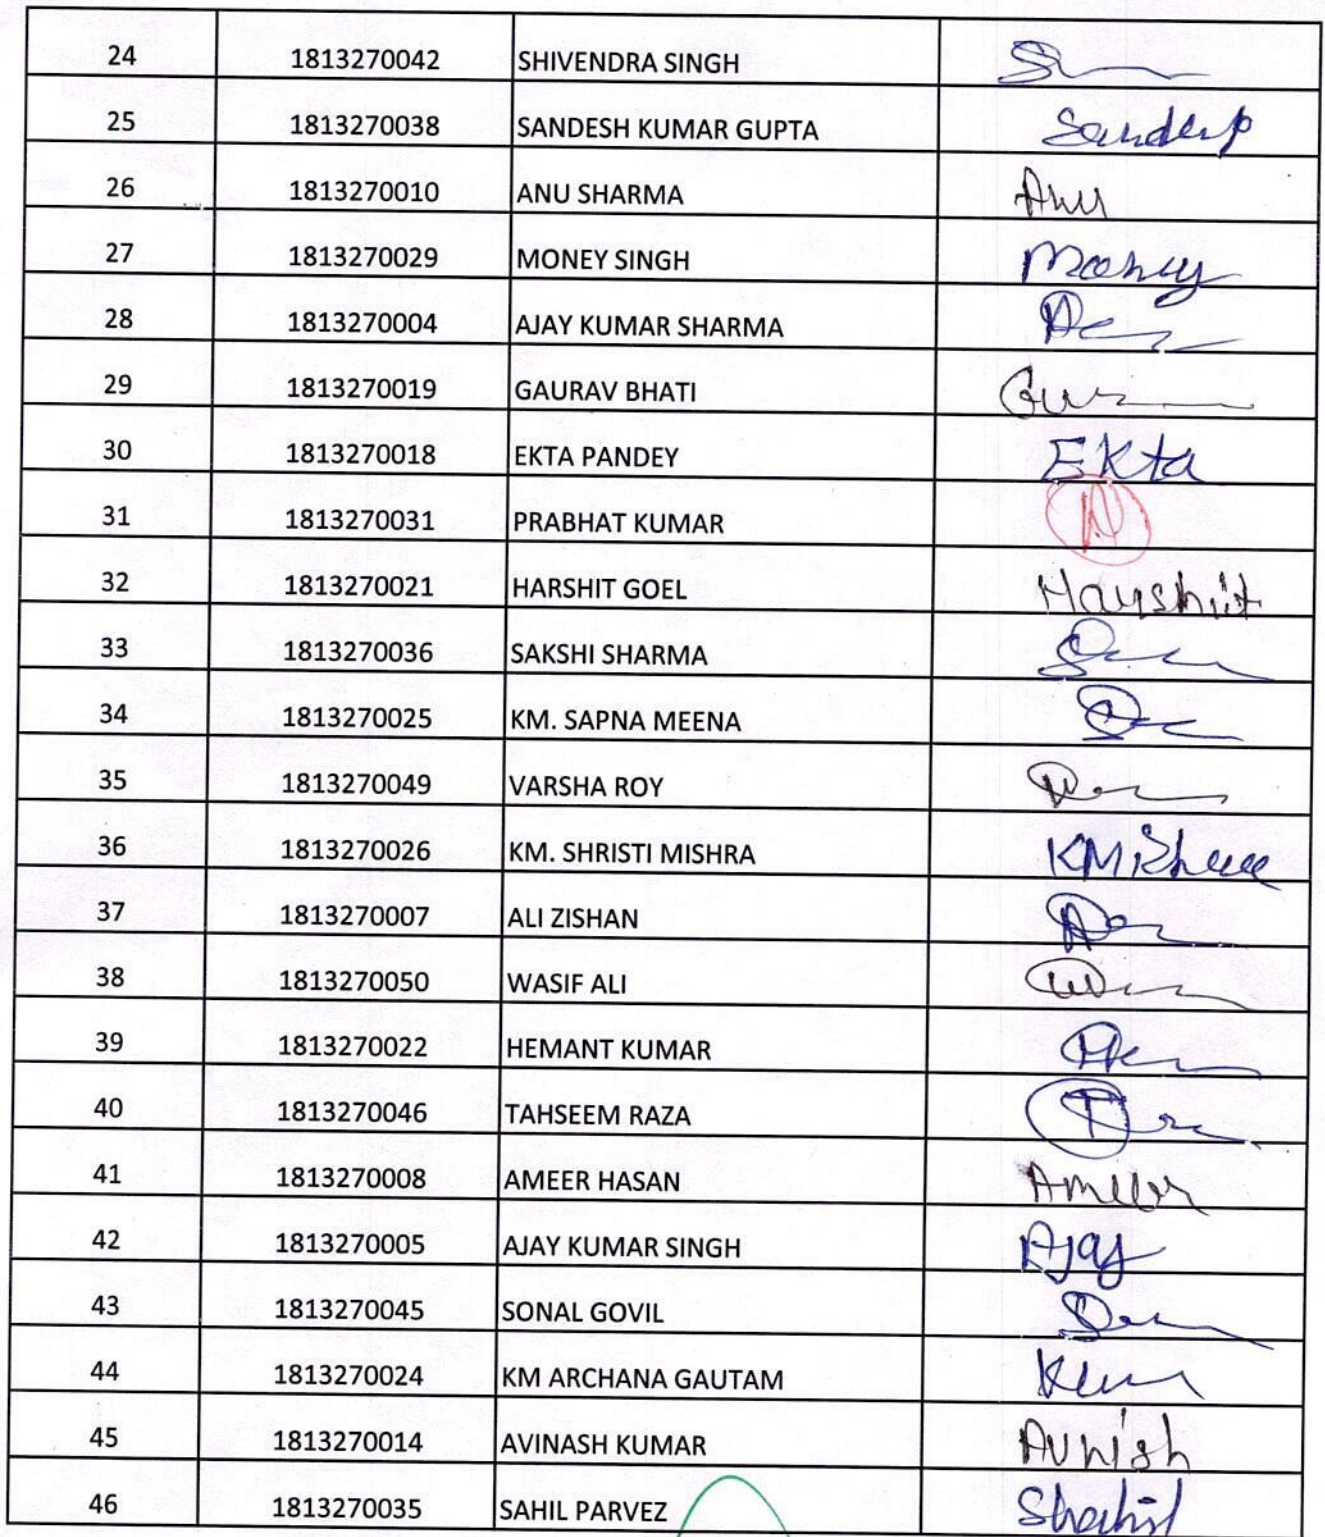 24 1813270042 SHIVENDRA SINGH
25 1813270038 SANDESH KUMAR GUPTA Sandeep
26 1813270010 ANU SHARMA Anu
27 1813270029 MONEY SINGH Money
28 1813270004 AJAY KUMAR SHARMA
29 1813270019 GAURAV BHATI
30 1813270018 EKTA PANDEY EKta
31 1813270031 PRABHAT KUMAR A
32 1813270021 HARSHIT GOEL Harshit
33 1813270036 SAKSHI SHARMA
34 1813270025 KM. SAPNA MEENA
35 1813270049 VARSHA ROY
36 1813270026 KM. SHRISTI MISHRA
37 1813270007 ALI ZISHAN
38 1813270050 WASIF ALI
39 1813270022 HEMANT KUMAR
40 1813270046 TAHSEEM RAZA
41 1813270008 AMEER HASAN Ameer
42 1813270005 AJAY KUMAR SINGH Ajay
43 1813270045 SONAL GOVIL
44 1813270024 KM ARCHANA GAUTAM
45 1813270014 AVINASH KUMAR Avnish
46 1813270035 SAHIL PARVEZ